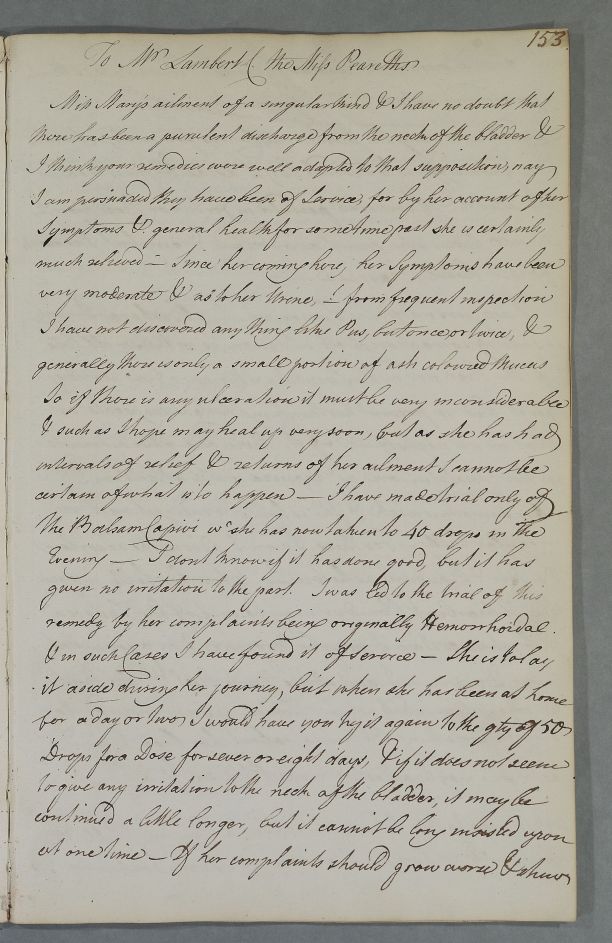 153.
To Mr Lambert C. the Miss Peareths
Miss Mary's ailment of a singular kind & I have no doubt that
there has been a purulent discharge from the neck of the bladder &
I think your remedies were well adapted to that supposition, nay
I am persuaded they have been of Service, for by her account of her
Symptoms & general health for some time past she is certainly
much relieved – Since her coming here, her Symptoms have been
very moderate & as to her Urine, from frequent inspection
I have not discovered any thing like Pus, but once or twice, &
generally there is only a small portion of ash coloured Mucus
So if there is any ulceration it must be very inconsiderable
& such as I hope may heal up very soon, but as she has had
intervals of relief & returns of her ailment I cannot be
certain of what is to happen – I have made trial only of
the Balsam Capivi wc she has now taken to 40 drops in the
Evening – I dont know if it has done good, but it has
given no irritation to the part. I was led to the trial of this
remedy by her complaints being originally Hemorrhoidal.
& in such Cases I have found it of service – She is to lay
it aside during her journey, but when she has been at home
for a day or two, I would have you try it again to the qty of 50
Drops for a Dose for seven or eight days, & if it does not seem
to give any irritation to the neck of the bladder, it may be
continued a little longer, but it cannot be long insisted upon
at one time – If her complaints should grow worse & shew